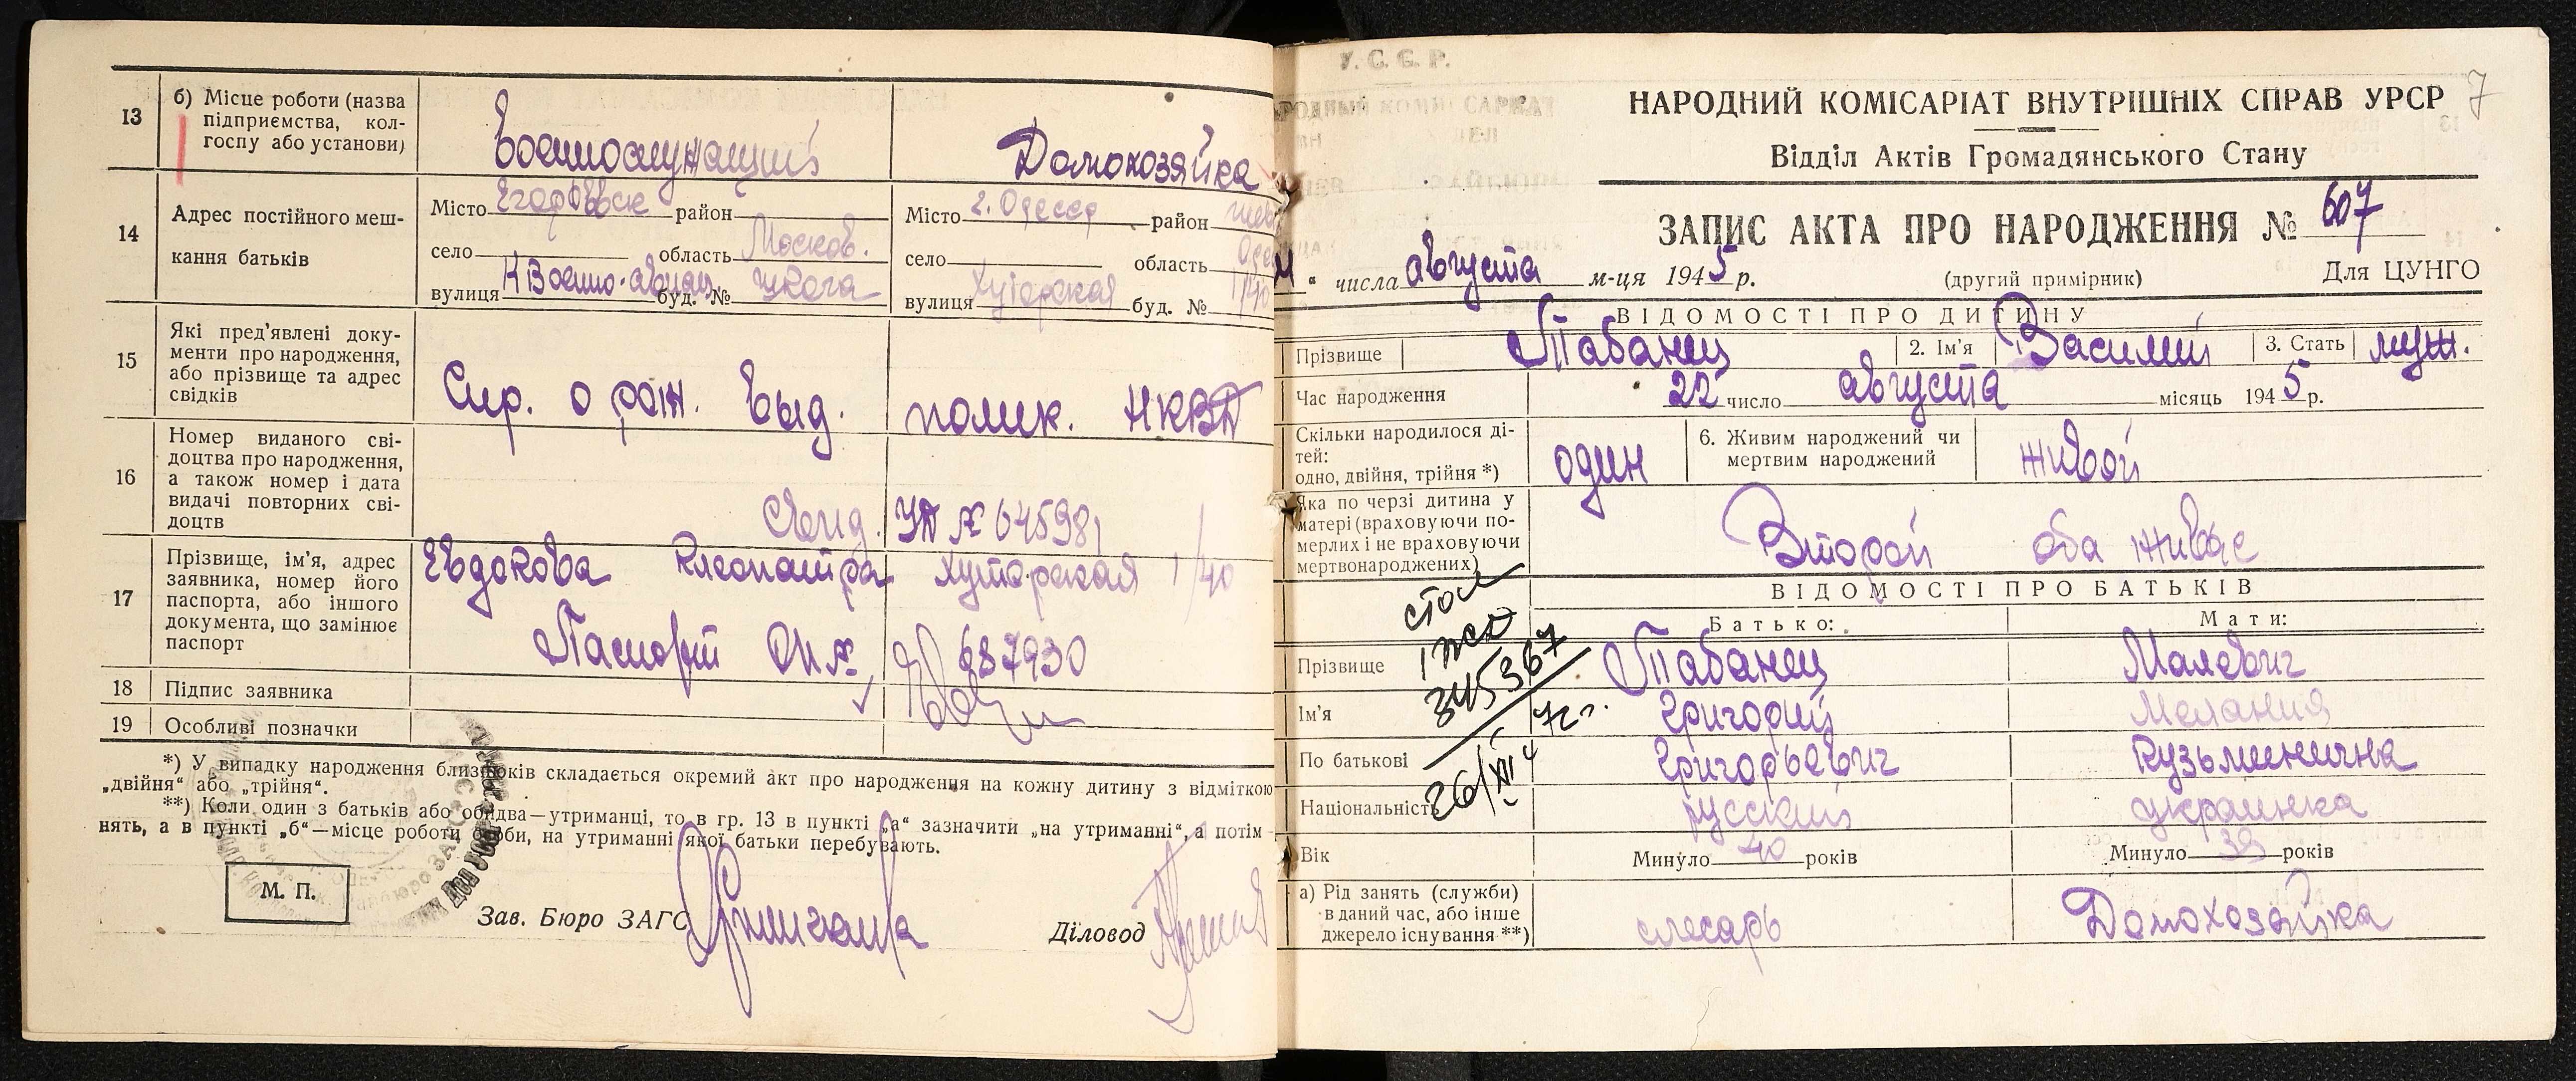 13
б) Місце роботи (назва
підприємства, кол-
госпу або установи)
Военнослужащий
Домохозяйка
14
Адрес постійного меш-
кання батьків
Місто Егорьевск район
село область Москов.
вулиця буд. № школа
Місто г. Одесса район
село область
вулиця Хуторская буд. № 1/40
15
Які пред'явлені доку-
менти про народження,
або прізвище та адрес
свідків
Спр. о рож. выд. полик. НКВД
16
Номер виданого сві-
доцтва про народження,
а також номер і дата
видачі повторних сві-
доцтв
Свид. № 645981
17
Прізвище, ім'я, адрес
заявника, номер його
паспорта, або іншого
документа, що замінює
паспорт
Евдокова Клеопатра Хуторская 1/40
Паспорт 687930
18 Підпис заявника
19 Особливі позначки
*) У випадку народження близнюків складається окремий акт про народження на кожну дитину з відміткою
„двійня" або „трійня".
**) Коли один з батьків або обидва—утриманці, то в гр. 13 в пункті „а" зазначити „на утриманні", а потім
нять, а в пункті „б"—місце роботи особи, на утриманні якої батьки перебувають.
М. П.
Зав. Бюро ЗАГС
Діловод
У. С. С. Р.
7
НАРОДНИЙ КОМІСАРІАТ ВНУТРІШНІХ СПРАВ УРСР
Відділ Актів Громадянського Стану
ЗАПИС АКТА ПРО НАРОДЖЕННЯ № 607
" числа августа м-ця 1945 р. (другий примірник) Для ЦУНГО
ВІДОМОСТІ ПРО ДИТИНУ
Прізвище Табанец 2. Ім'я Василий 3. Стать муж.
Час народження 22 число августа місяць 1945 р.
Скільки народилося ді-
тей:
одно, двійня, трійня *)
один
6. Живим народжений чи
мертвим народжений
живой
Яка по черзі дитина у
матері (враховуючи по-
мерлих і не враховуючи
мертвонароджених)
Второй оба живые
ВІДОМОСТІ ПРО БАТЬКІВ
Батько: Мати:
Прізвище Табанец Малевич
Ім'я Григорий Мелания
По батькові Григорьевич Кузьминична
Національність русский украинка
Вік Минуло 40 років Минуло 39 років
а) Рід занять (служби)
в даний час, або інше
джерело існування **)
слесарь
Домохозяйка
345367
26/XII 72 г.